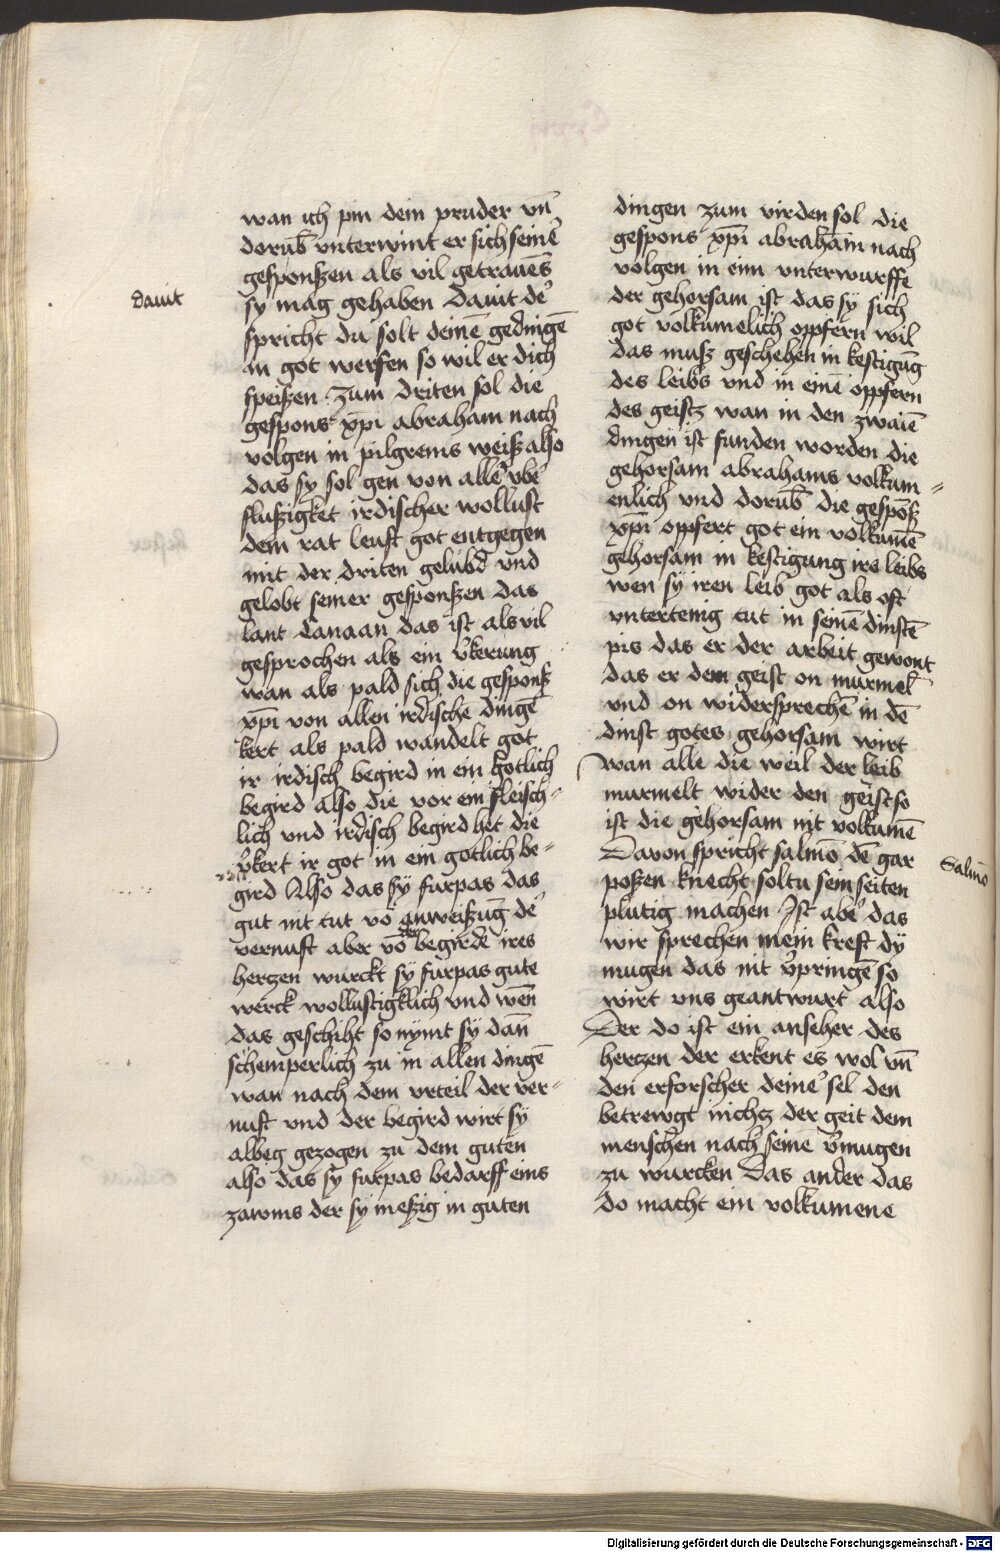 wan ich pin dein pruder vn̄
dorūb vnterwint er sich seinē
gesponßen als vil getrauēs
sy mag gehaben Dauit de᷑
dauit
spricht du solt deinē gedingē
in got werfen so wil er dich
speißen Zum driten sol die
gespons xp̄i abraham nach
volgen in pilgreims weiß also
das sy sol gen von alle᷑ vbe᷑
flußigket irdischer wollust
dem rat leuft got entgegen
mit der driten gelubd vnd
gelobt seiner gesponßen das
lant Canaan das ist als vil
gesprochen als ein v᷑kerung
wan als pald sich die gesponß
xp̄i von allen irdischē dingē
kert als pald wandelt got
ir irdisch begird in ein gotlich
begird also die vor ein fleisch⸗
lich vnd irdisch begird het die
v᷑kert ir got in ein gotlich be⸗
gird Also das sy furpas das
gut nit tut vō anweißūg de᷑
vernuft aber vō der begirde ires
hertzen wurckt sy furpas gute
werck wollustigklich vnd wēn
das geschiht so nymt sy dan̄
schemperlich zu in allen dingē
wan nach dem vrteil der ver⸗
nuft vnd der begird wirt sy
albeg gezogen zu dem guten
also das sy furpas bedarff eins
zawms der sy meßig in guten
dingen Zum virden sol die
gespons xp̄i abraham nach
volgen in eim vnterwurffe
der gehorsam ist das sy sich
got volkumelich oppfern wil
das muß geschehen in kestigūg
des leibs vnd in einē oppfern
des geistz wan in den zwaiē
dingen ist funden worden die
gehorsam abrahams volkum⸗
enlich vnd dorūb die gespōß
xp̄i oppfert got ein volkumē
gehorsam in kestigung ire leibs
wen sy iren leib got als oft
vntertenig tut in seinē dinstē
pis das er der arbeit gewont
das er dem geist on murmel̄
vnd on widersprechē in dē
dinst gotes gehorsam wirt
wan alle die weil der leib
murmelt wider den geist so
ist die gehorsam nit volkumē
Dauon spricht salmō dē gar
Salmō
poßen knecht soltu sein seiten
plutig machen Ist abe᷑ das
wir sprechen mein kreft dy
mugen das nit v᷑pringē so
wirt vns geantwurt also
Der do ist ein anseher des
hertzen der erkent es wol vn̄
den erforscher deine᷑ sel den
betrewgt nichtz der geit dem
menschen nach seinē v᷑mugen
zu wurcken Das ander das
do macht ein volkumene
Digitalisierung gefördert durch die Deutsche Forschungsgemeinschaft - DFG